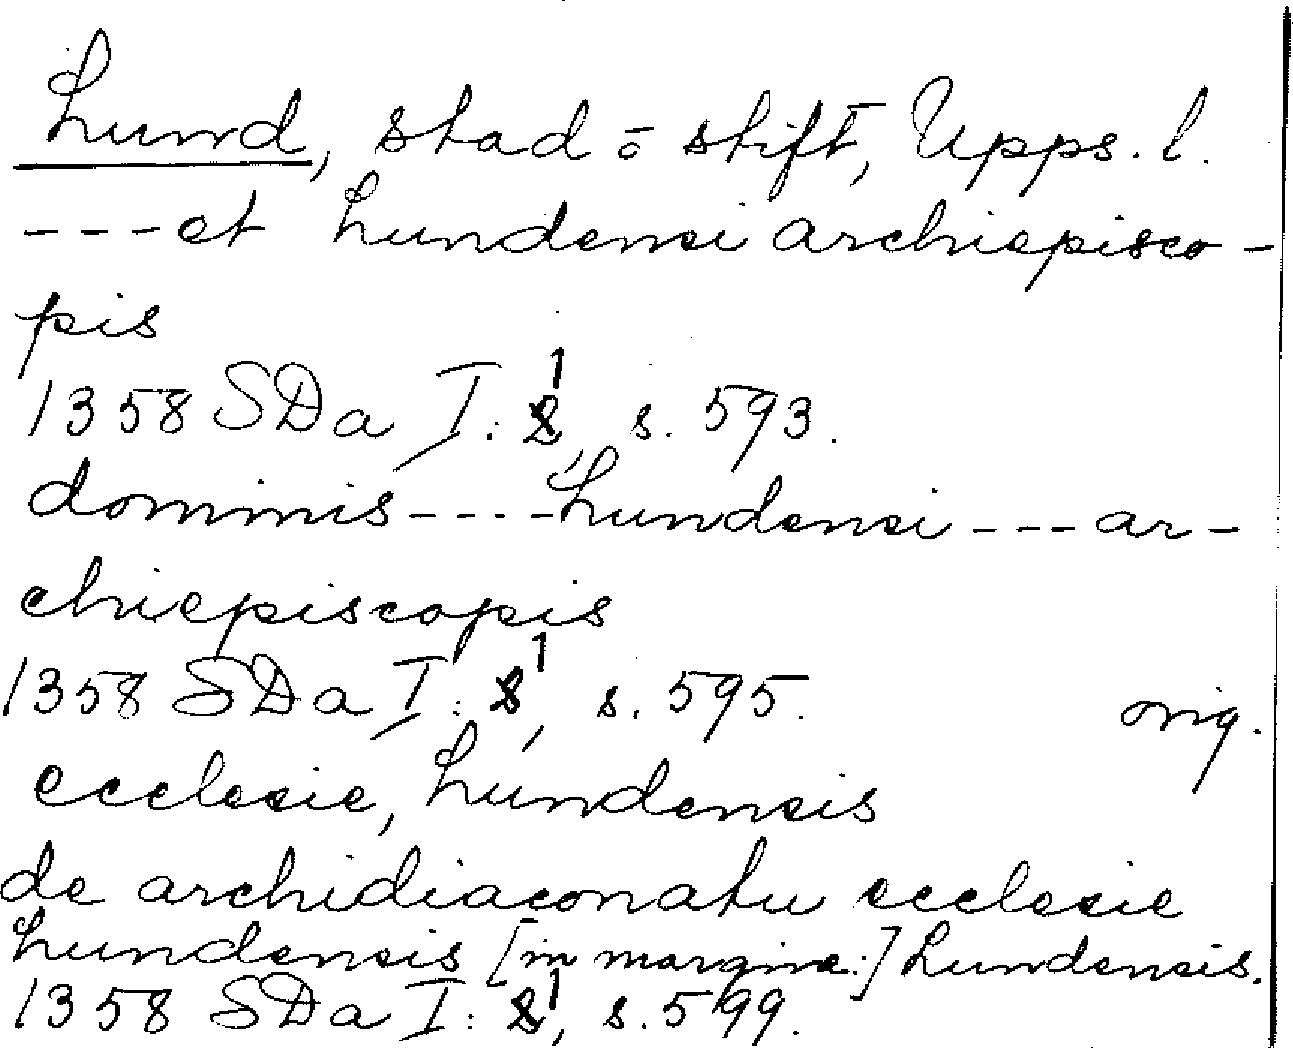 Lund, stad o stift, Upps. l.
---et Lundensi archiepisco-
pis
1358 SDa I: 1, s. 593.
dominis----Lundensi---ar-
chiepiscopis
1358 SDa I: 1, s. 595. orig.
ecclesie, Lundensis
de archidiaconatu ecclesie
Lundensis [in margine:] Lundensis.
1358 SDa I: 1, s. 599.